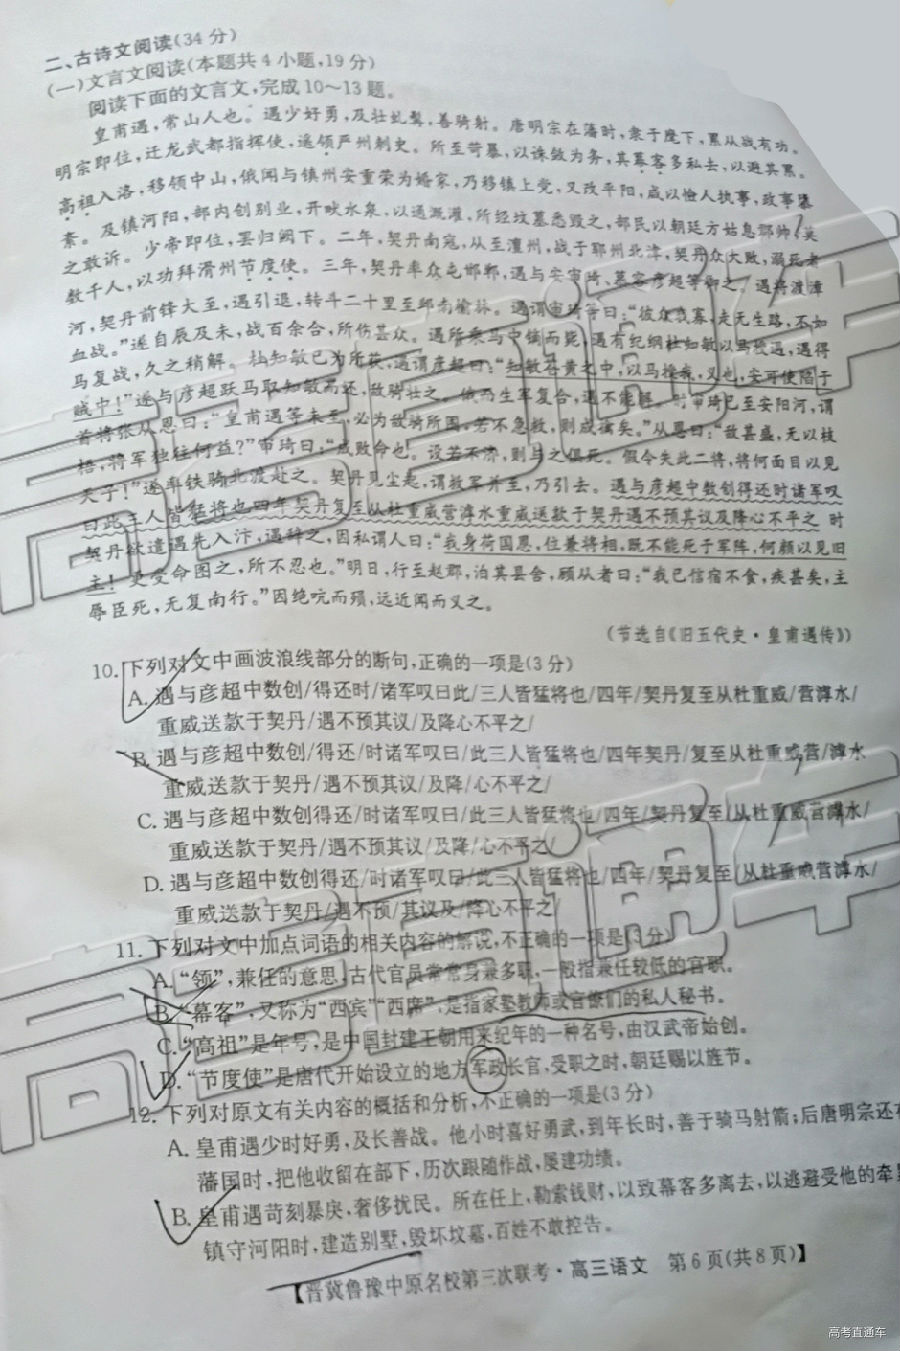 二、古诗文阅读(34分)
(一)文言文阅读(本题共4小题,19分)
阅读下面的文言文,完成10～13题。
皇甫遇,常山人也。遇少好勇,及壮虬髯,善骑射。唐明宗在藩时,隶于麾下,累从战有功。
明宗即位,迁龙武都指挥使,遥领严州刺史。所至苛暴,以诛敛为务,其幕客多私去,以避其累。
高祖入洛,移领中山,俄闻与镇州安重荣为婚家,乃移镇上党,又改平阳,咸以憸人执事,政事隳
紊。及镇河阳,部内创别业,开畎水泉,以通溉灌,所经坟墓悉毁之,部民以朝廷方姑息郡帅,莫
之敢诉。少帝即位,罢归阙下。二年,契丹南寇,从至澶州,战于郓州北津,契丹众大败,溺死者
数千人,以功拜滑州节度使。三年,契丹率众屯邯郸,遇与安审琦、慕容彦超等御之。遇将渡漳
河,契丹前锋大至,遇引退,转斗二十里至邺南榆林。遇谓审琦等曰:“彼众我寡,走无生路,不如
血战。”遂自辰及未,战百余合,所伤甚众。遇所乘马中镝而毙,遇有纪纲杜知敏以马授遇,遇得
马复战,久之稍解。杜知敏已为所获,遇谓彦超曰:“知敏苍黄之中,以马授我,义也,安可使陷于
贼中!”遂与彦超跃马取知敏而还,敌骑壮之。俄而生军复合,遇不能解。时审琦已至安阳河,谓
首将张从恩曰:“皇甫遇等未至,必为敌骑所围,若不急救,则成擒矣。”从恩曰:“敌甚盛,无以枝
梧,将军独往何益?”审琦曰:“成败命也。设若不济,则与之俱死。假令失此二将,将何面目以见
天子!”遂率铁骑北渡赴之。契丹见尘起,谓救军并至,乃引去。遇与彦超中数创得还时诸军叹
曰此三人皆猛将也四年契丹复至从杜重威营滹水重威送款于契丹遇不预其议及降心不平之 时
契丹欲遣遇先入汴,遇辞之,因私谓人曰:“我身荷国恩,位兼将相,既不能死于军阵,何颜以见旧
主!更受命图之,所不忍也。”明日,行至赵郡,泊其县舍,顾从者曰:“我已信宿不食,疾甚矣,主
辱臣死,无复南行。”因绝吭而殒,远近闻而义之。
(节选自《旧五代史·皇甫遇传》)
10. 下列对文中画波浪线部分的断句,正确的一项是(3分)
A. 遇与彦超中数创/得还时/诸军叹曰此/三人皆猛将也/四年/契丹复至从杜重威/营滹水/
重威送款于契丹/遇不预其议/及降心不平之/
B. 遇与彦超中数创/得还/时诸军叹曰/此三人皆猛将也/四年契丹/复至从杜重威营/滹水
重威送款于契丹/遇不预其议/及降/心不平之/
C. 遇与彦超中数创得还/时诸军叹曰/此三人皆猛将也/四年/契丹复至/从杜重威营滹水/
重威送款于契丹/遇不预其议/及降/心不平之/
D. 遇与彦超中数创得还/时诸军叹曰/此三人皆猛将也/四年/契丹复至/从杜重威营滹水/
重威送款于契丹/遇不预/其议及/降心不平之/
11. 下列对文中加点词语的相关内容的解说,不正确的一项是(3分)
A. “领”,兼任的意思,古代官员常常身兼多职,一般指兼任较低的官职。
B. “幕客”,又称为“西宾”“西席”,是指家塾教师或官僚们的私人秘书。
C. “高祖”是年号,是中国封建王朝用来纪年的一种名号,由汉武帝始创。
D. “节度使”是唐代开始设立的地方军政长官,受职之时,朝廷赐以旌节。
12. 下列对原文有关内容的概括和分析,不正确的一项是(3分)
A. 皇甫遇少时好勇,及长善战。他小时喜好勇武,到年长时,善于骑马射箭;后唐明宗还在
藩国时,把他收留在部下,历次跟随作战,屡建功绩。
B. 皇甫遇苛刻暴戾,奢侈扰民。所在任上,勒索钱财,以致幕客多离去,以逃避受他的牵累
镇守河阳时,建造别墅,毁坏坟墓,百姓不敢控告。
【晋冀鲁豫中原名校第三次联考·高三语文 第6页(共8页)】
高考直通车
高考直通车
高考直通车